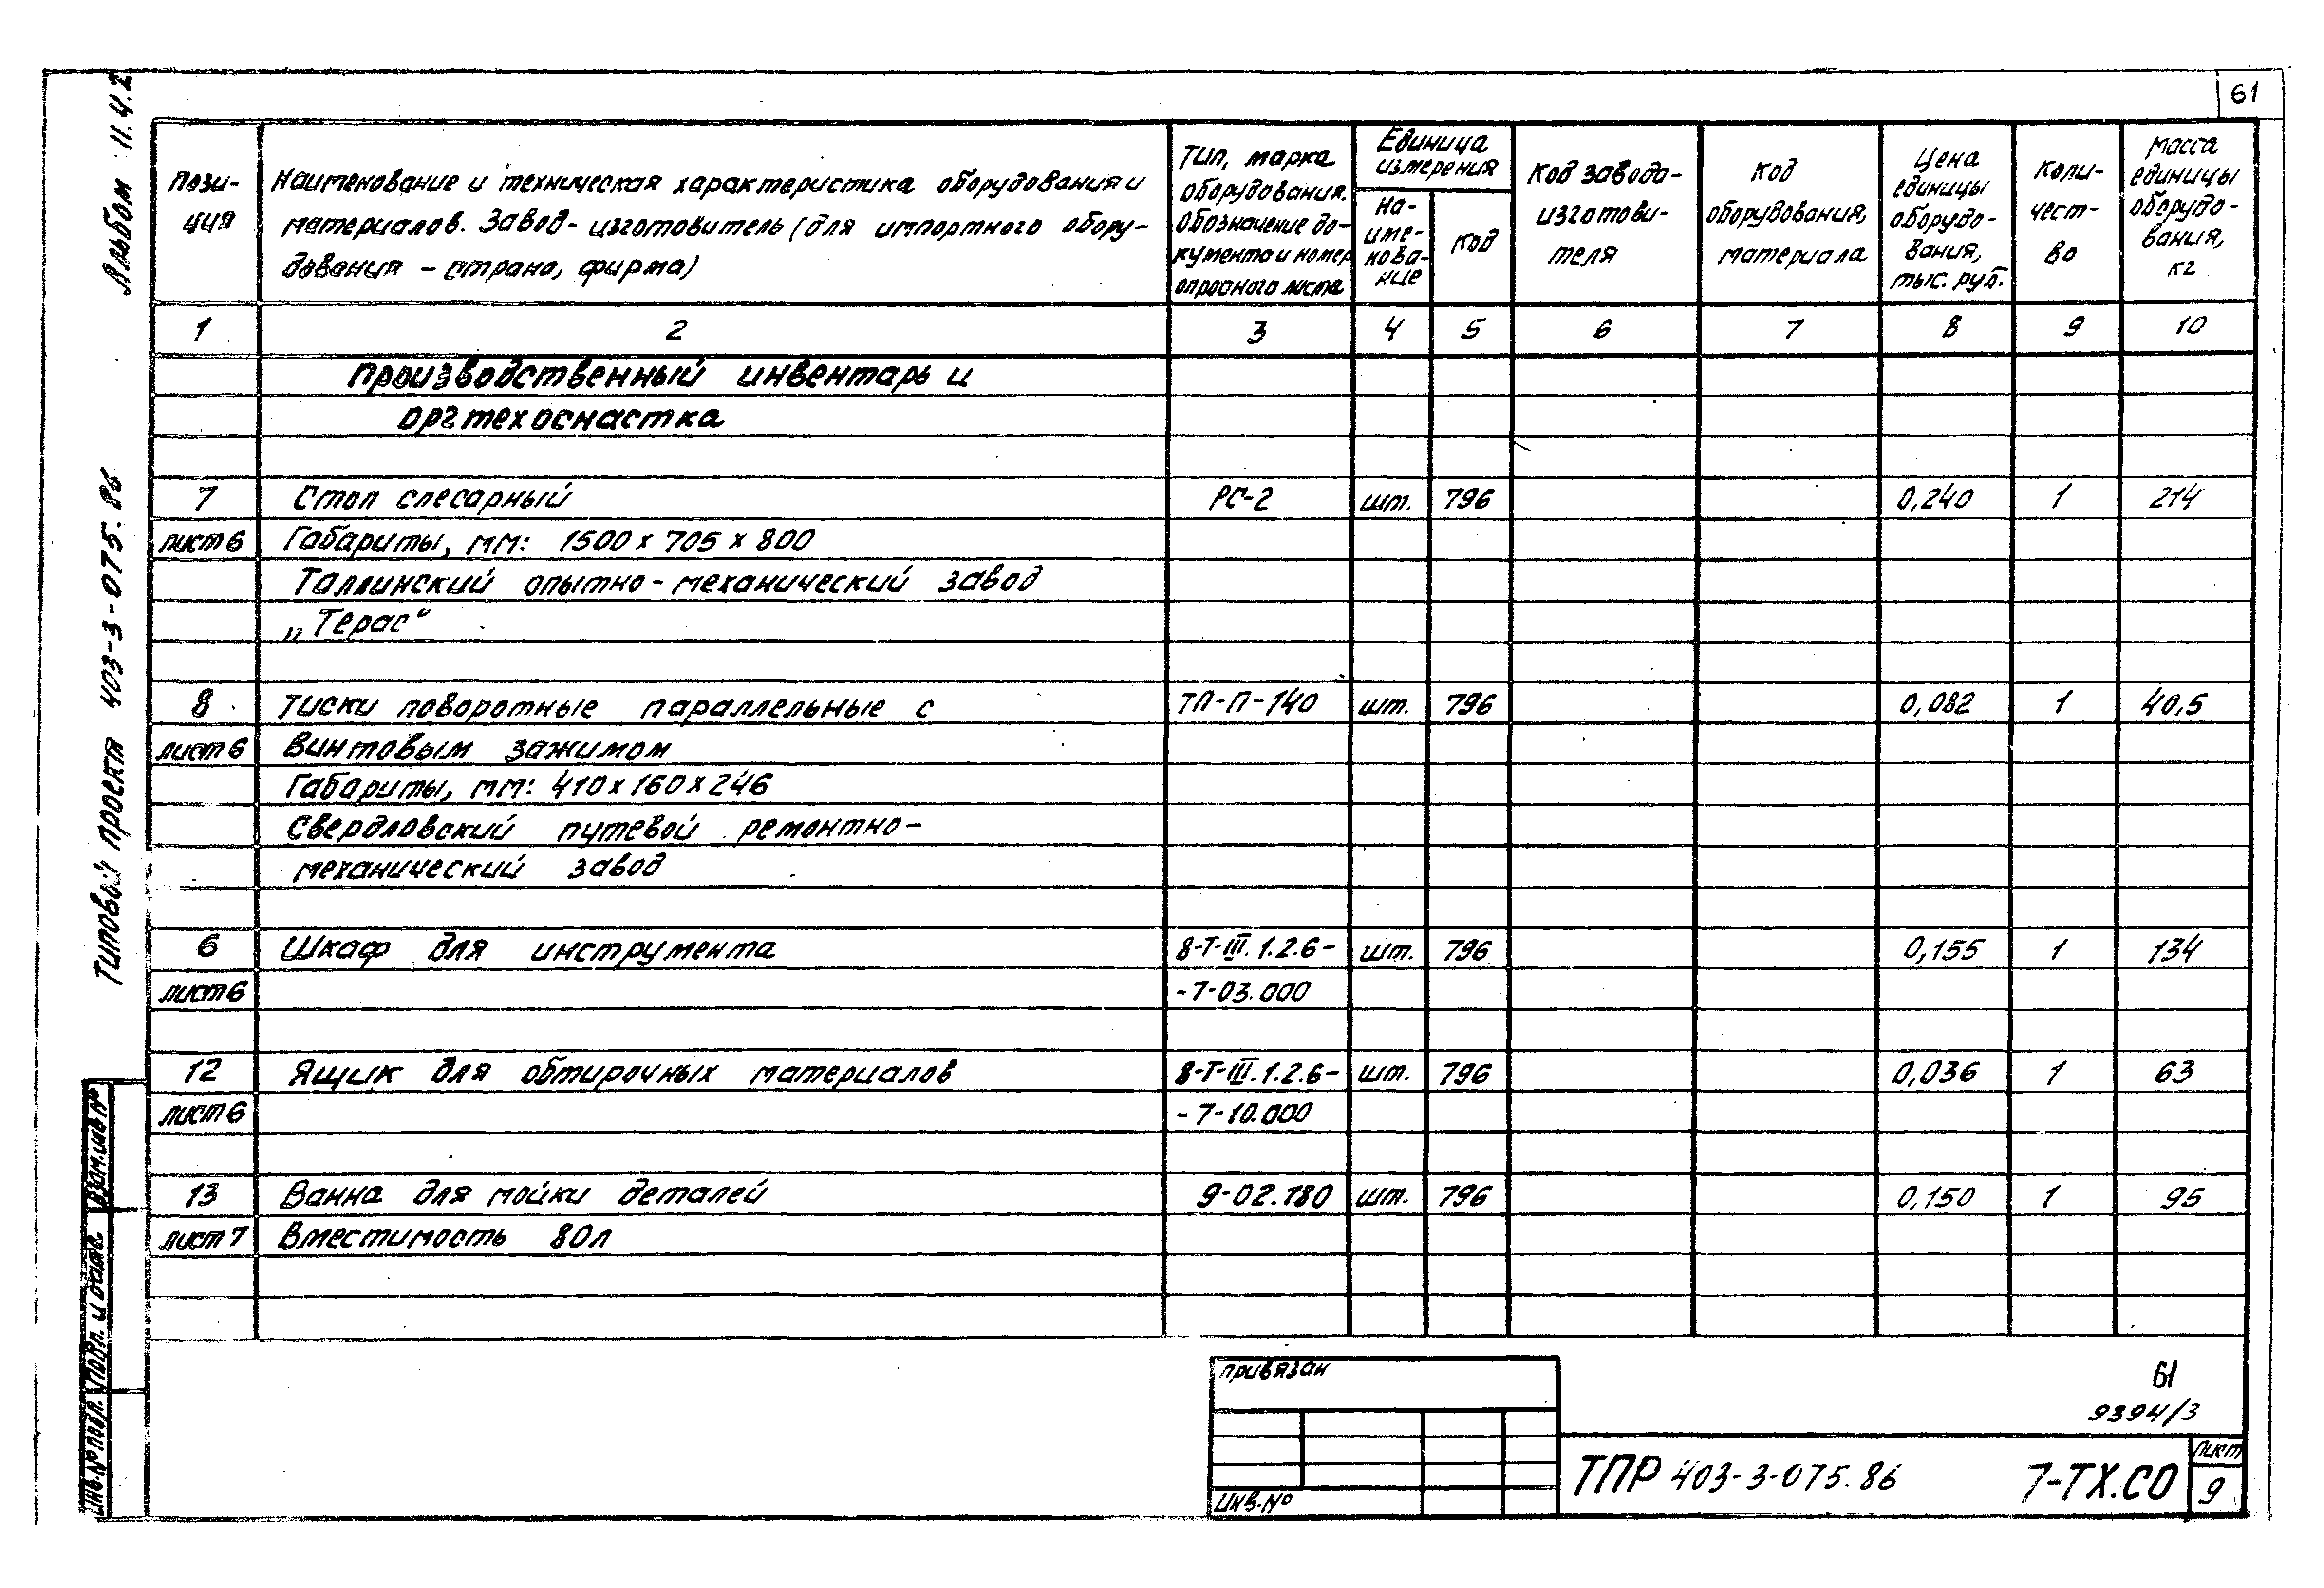 61
Альбом 11.4.2
Типовой проекта 403-3-075.86
Пози-
ция
Наименование и техническая характеристика оборудования и
материалов. Завод-изготовитель (для импортного обору-
дования - страна, фирма)
Тип, марка
оборудования.
Обозначение до-
кумента и номер
опросного листа
Единица
измерения
на-
име-
нова-
ние
код
Код завода-
изготови-
теля
Код
оборудования,
материала
Цена
единицы
оборудо-
вания,
тыс. руб.
Коли-
чест-
во
Масса
единицы
оборудо-
вания,
кг
1 2 3 4 5 6 7 8 9 10
Производственный инвентарь и
оргтехоснастка
7 Стол слесарный РС-2 шт. 796 0,240 1 214
лист 6 Габариты, мм: 1500 х 705 х 800
Таллинский опытно-механический завод
„Терас“
8 Тиски поворотные параллельные с ТП-П-140 шт. 796 0,082 1 40,5
лист 6 винтовым зажимом
Габариты, мм: 410х160х246
Свердловский путевой ремонтно-
механический завод
6 Шкаф для инструмента 8-Т-III.1.2.6- шт. 796 0,155 1 134
лист 6 -7-03.000
12 Ящик для обтирочных материалов 8-Т-III.1.2.6- шт. 796 0,036 1 63
лист 6 -7-10.000
13 Ванна для мойки деталей 9-02.180 шт. 796 0,150 1 95
лист 7 Вместимость 80л
Взам.инв №
Подп. и дата
Инв.№ подл.
Привязан
Инв.№
61
9394/3
ТПР 403-3-075.86 7-ТХ.СО
Лист
9